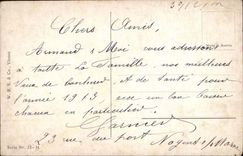 Chers Amis,
Armand & Moi vous adressons
à toute la famille, nos meilleurs
Vœux de bonheur & de santé pour
l'année 1913 avec un bon baiser
chacun en particulier.
Garnier
23 rue du Port Nogent s/Marne
Serie Nr.